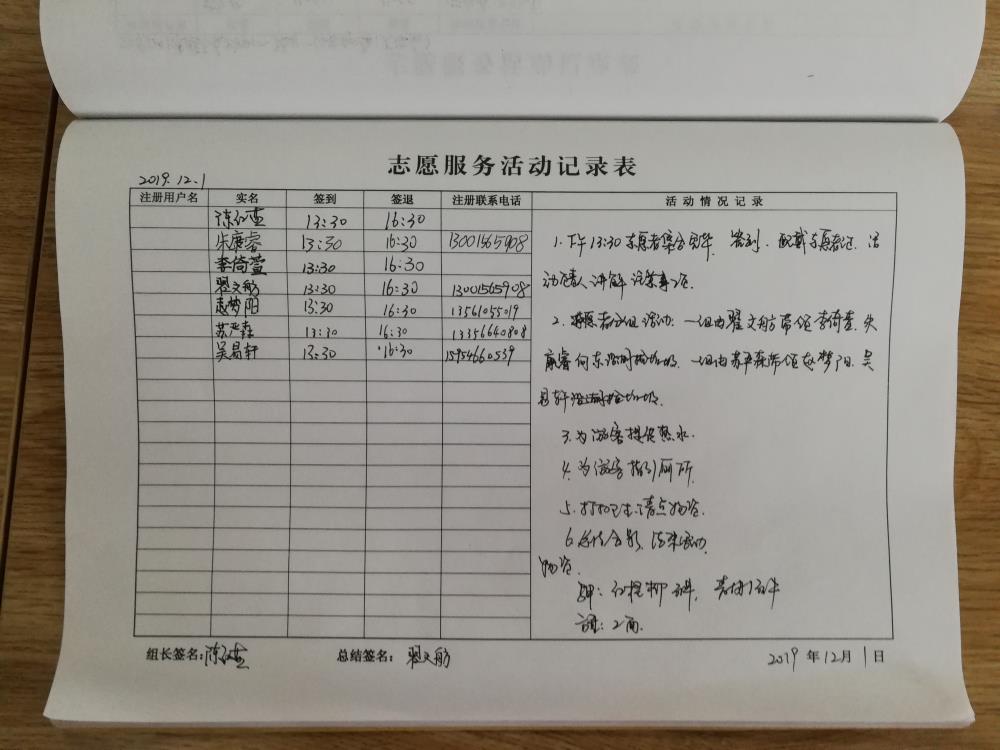 志愿服务活动记录表
2019.12.1
注册用户名 实名 签到 签退 注册联系电话 活动情况记录
陈红查 13:30 16:30
朱赓睿 13:30 16:30 13001565908
李倚萱 13:30 16:30
翟文舫 13:30 16:30 13001565908
赵梦阳 13:30 16:30 13561055019
苏严森 13:30 16:30 13356640808
吴易轩 13:30 16:30 15954660539
1.下午13:30志愿者集合完毕,签到、配戴志愿者证、活
动负责人讲解注意事项.
2.志愿者分组活动:一组由翟文舫带领李倚萱、朱
赓睿向东沿湖捡垃圾.一组由苏严森带领赵梦阳、吴
易轩沿湖捡垃圾.
3.为游客提供热水.
4.为游客指引厕所.
5.打扫卫生,清点物资.
6.总结合影,结束活动.
物资.
2箱.
组长签名: 总结签名:翟文舫 2019年12月1日